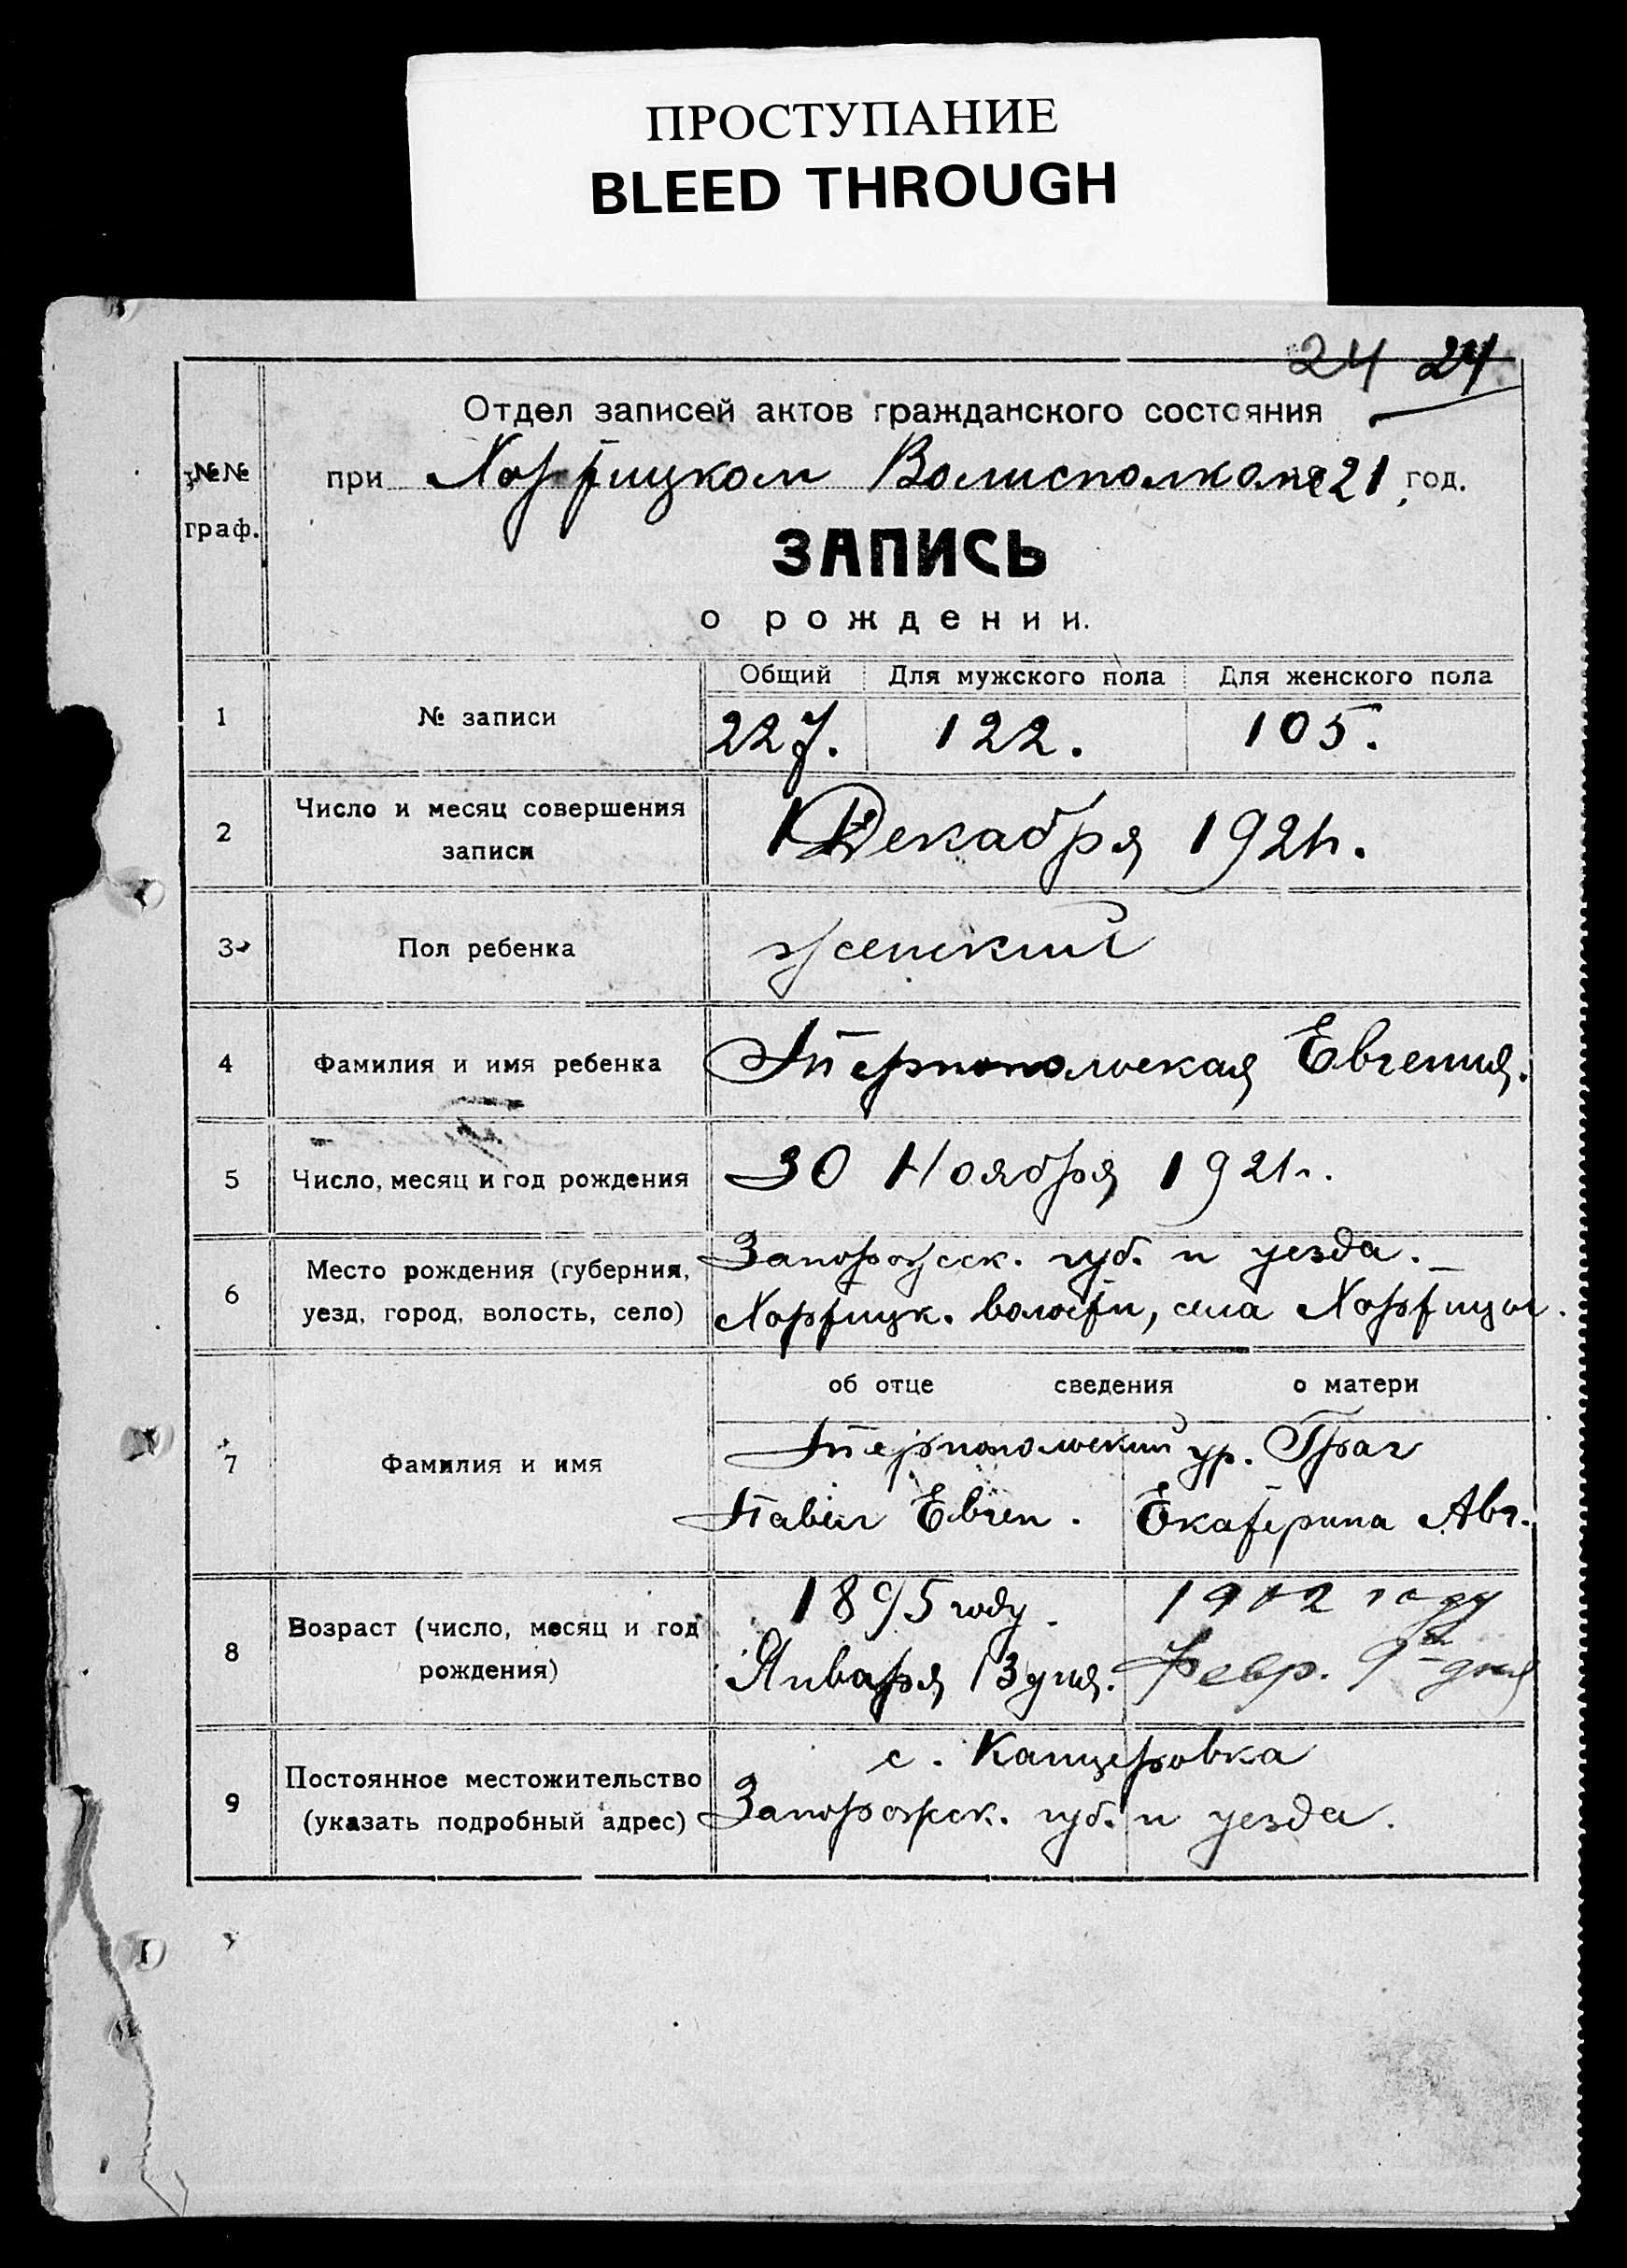 ПРОСТУПАНИЕ
BLEED THROUGH
24 24
Отдел записей актов гражданского состояния
№№ граф.
при Хортицком Волисполкоме 21 год.
ЗАПИСЬ
о рождении.
Общий Для мужского пола Для женского пола
1 № записи 227. 122. 105.
2 Число и месяц совершения записи
1 Декабря 1921 г.
3 Пол ребенка женский
4 Фамилия и имя ребенка Тернопольская Евгения.
5 Число, месяц и год рождения 30 Ноября 1921 г.
6 Место рождения (губерния, уезд, город, волость, село)
Запорожск. губ. и уезда.
Хортицк. волости, села Хортицы.
об отце сведения о матери
7 Фамилия и имя
Тернопольский ур. Грач
Павел Евген. Екатерина Авг.
8 Возраст (число, месяц и год рождения)
1895 году 1902 году
Января 13 дня. Февр. 9го дня
9 Постоянное местожительство (указать подробный адрес)
с. Канцеровка
Запорожск. губ. и уезда.